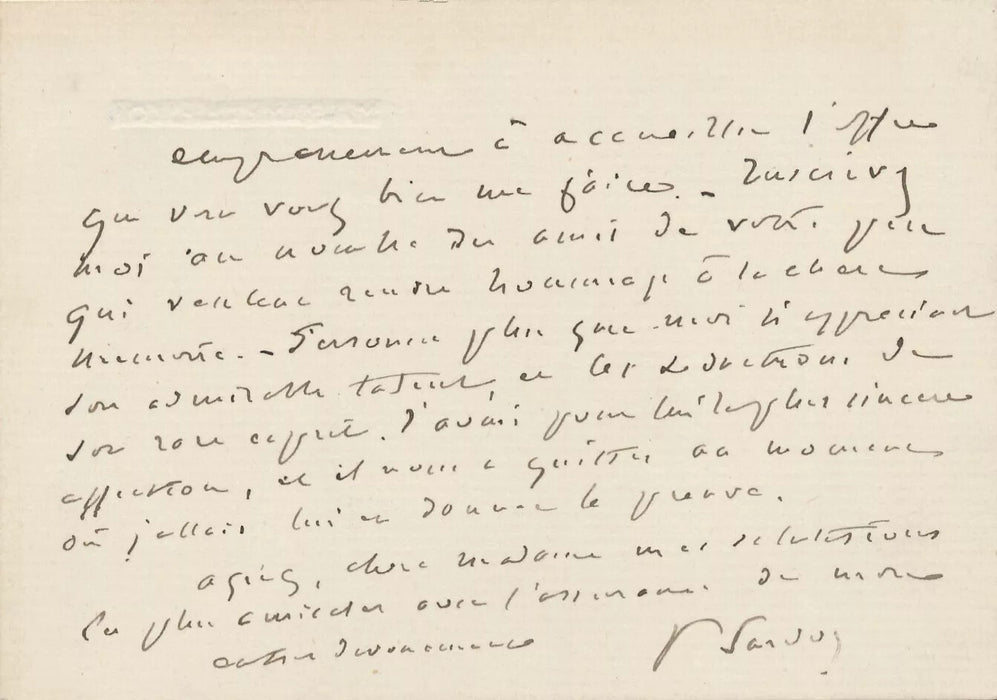 empressement à accueillir l'offre
que vous voulez bien me faire. – Inscrivez
moi au nombre des amis de votre père
qui veulent rendre hommage à sa chère
mémoire. – Personne plus que moi n'appréciait
son admirable talent, et les séductions de
son rare esprit. J'avais pour lui la plus sincère
affection, et il nous a quittés au moment
où j'allais lui en donner la preuve.
agréez, chère madame mes salutations
les plus amicales avec l'assurance de mon
entier dévouement
V Sardou